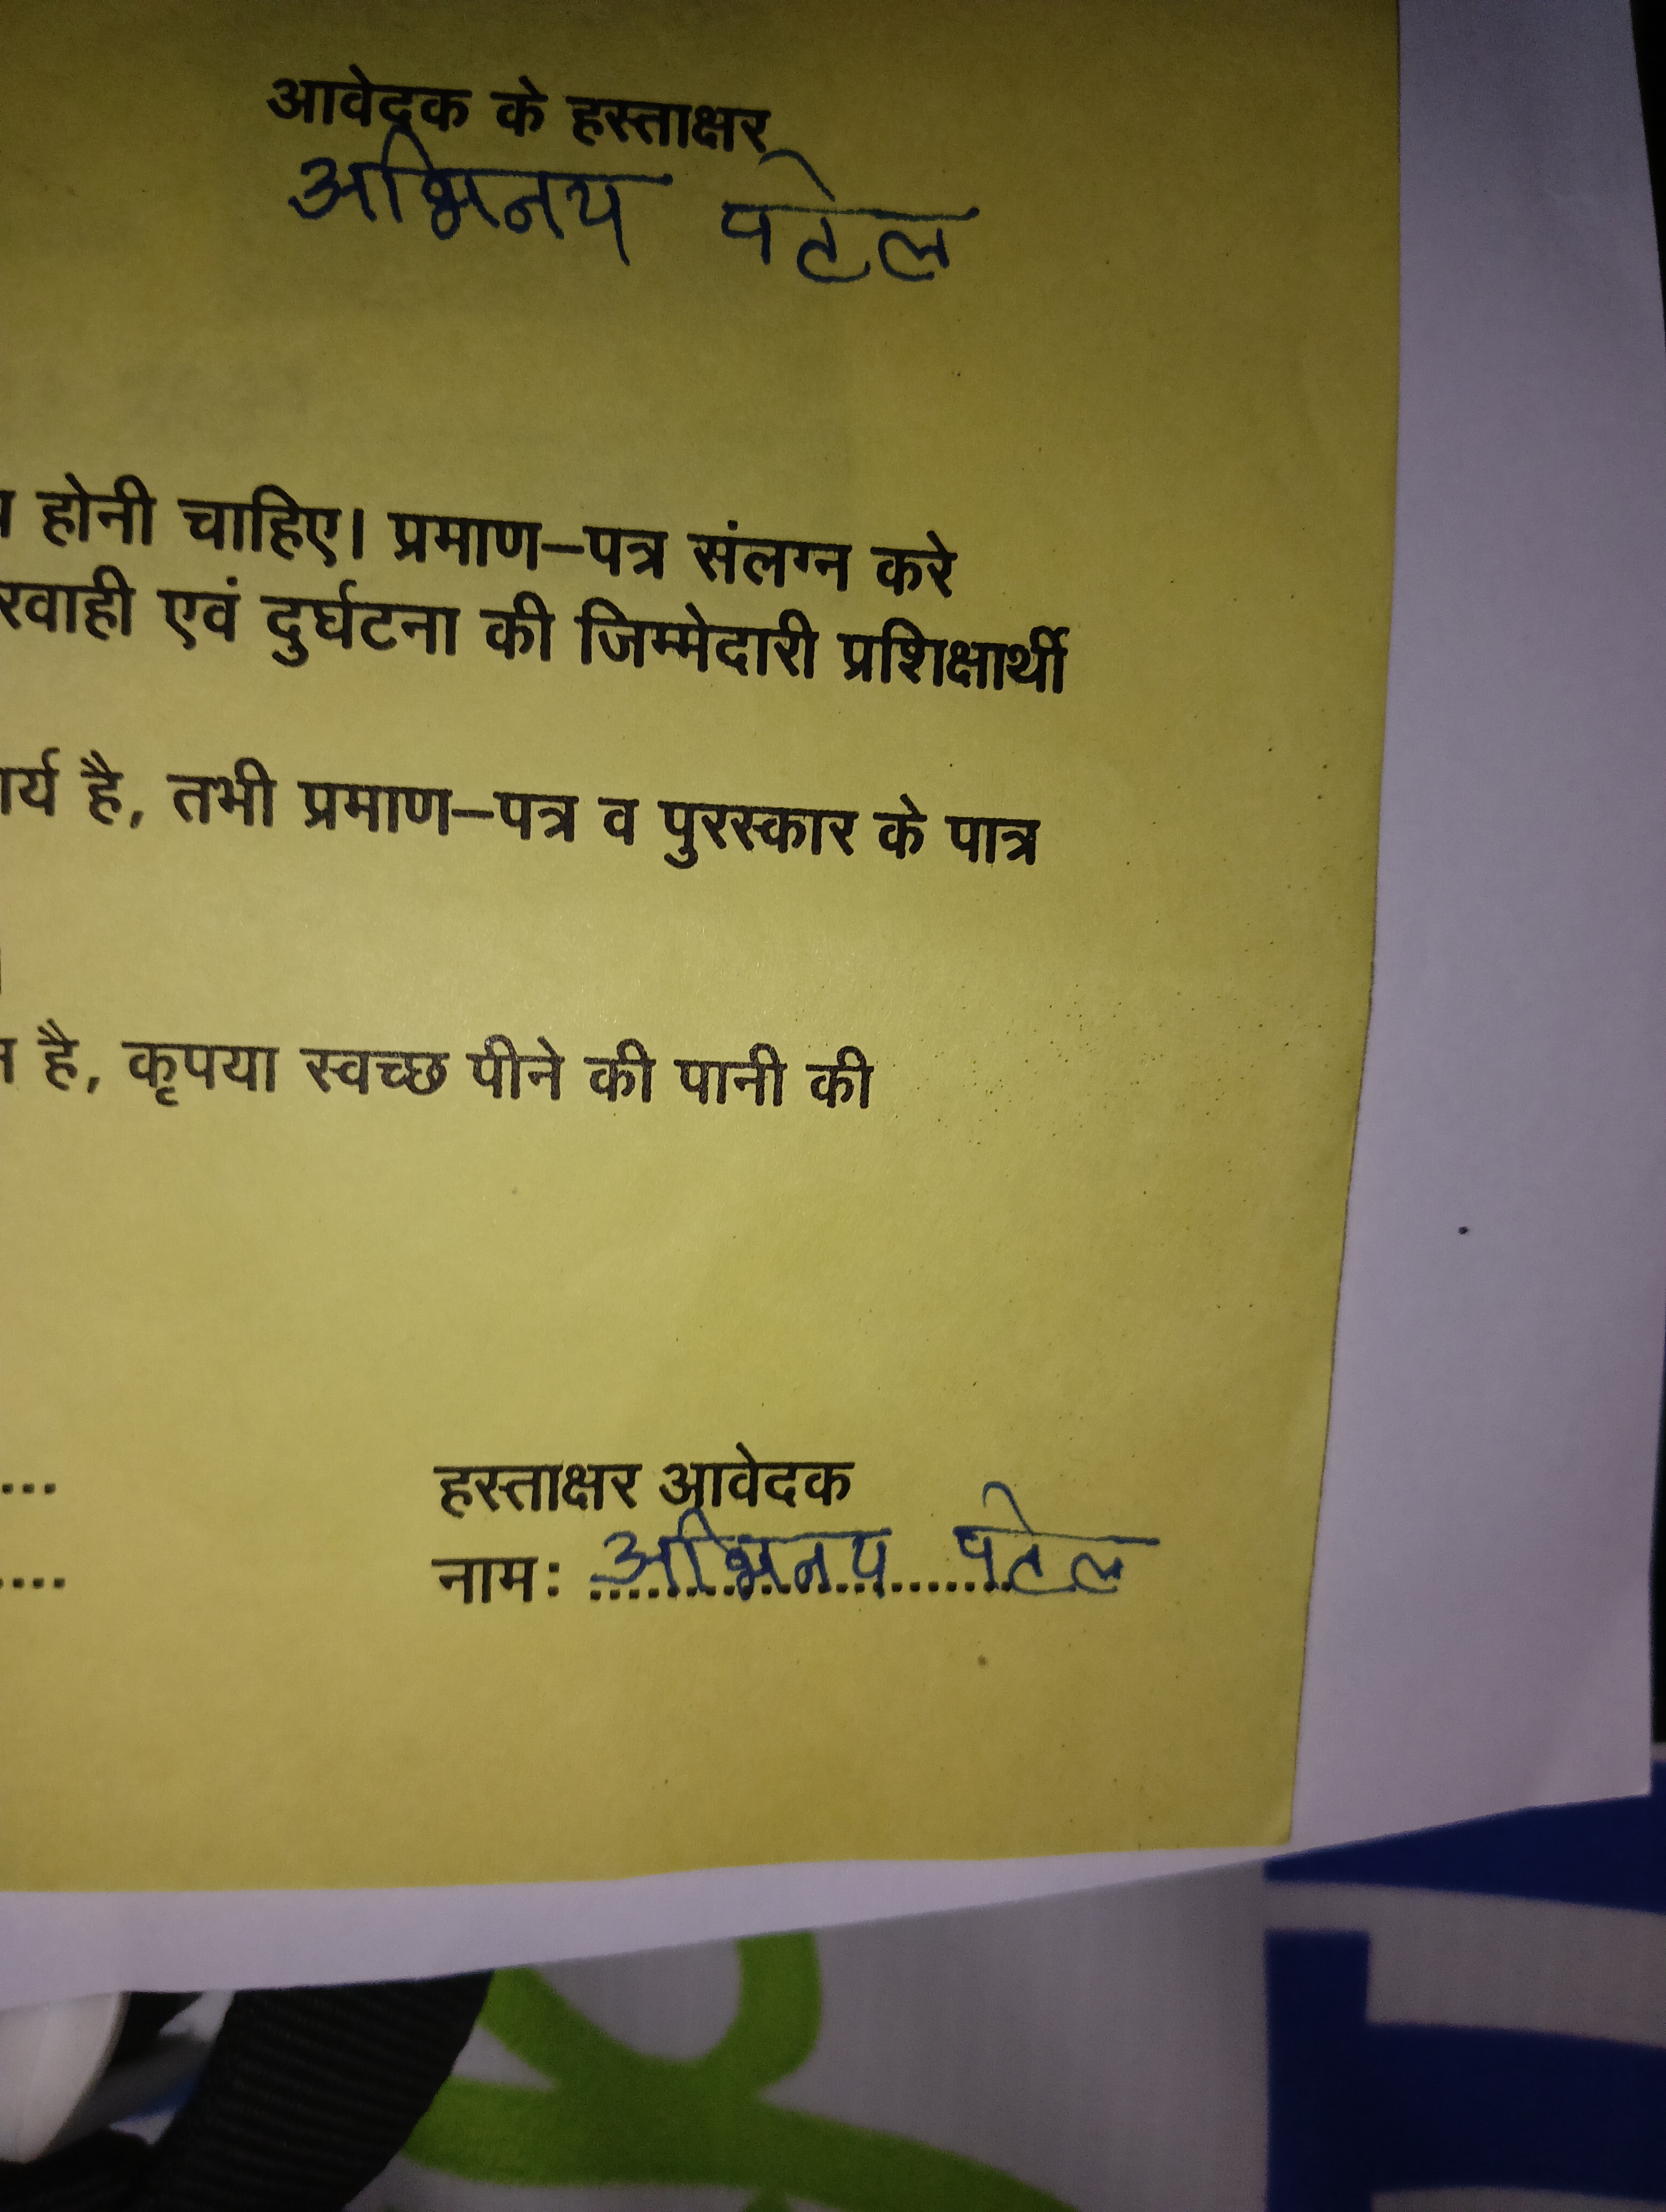 आवेदक के हस्ताक्षर
अभिनय पटेल
होनी चाहिए। प्रमाण–पत्र संलग्न करे
एवं दुर्घटना की जिम्मेदारी प्रशिक्षार्थी
है, तभी प्रमाण–पत्र व पुरस्कार के पात्र
है, कृपया स्वच्छ पीने की पानी की
हस्ताक्षर आवेदक
नामः अभिनय पटेल